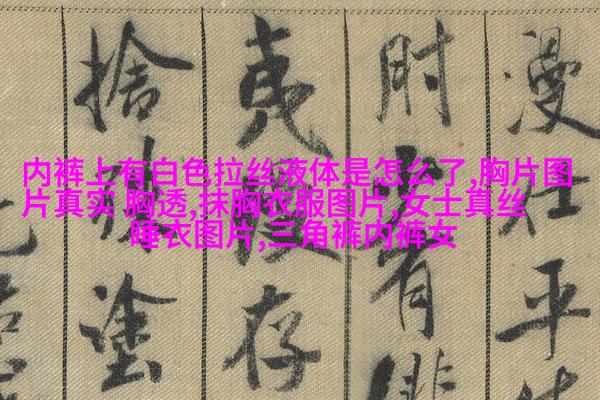 内裤上有白色拉丝液体是怎么了,胸片图
片真实 胸透,抹胸衣服图片,女士真丝
睡衣图片,三角裤内裤女
漫仕平
有
夷存
捨塗